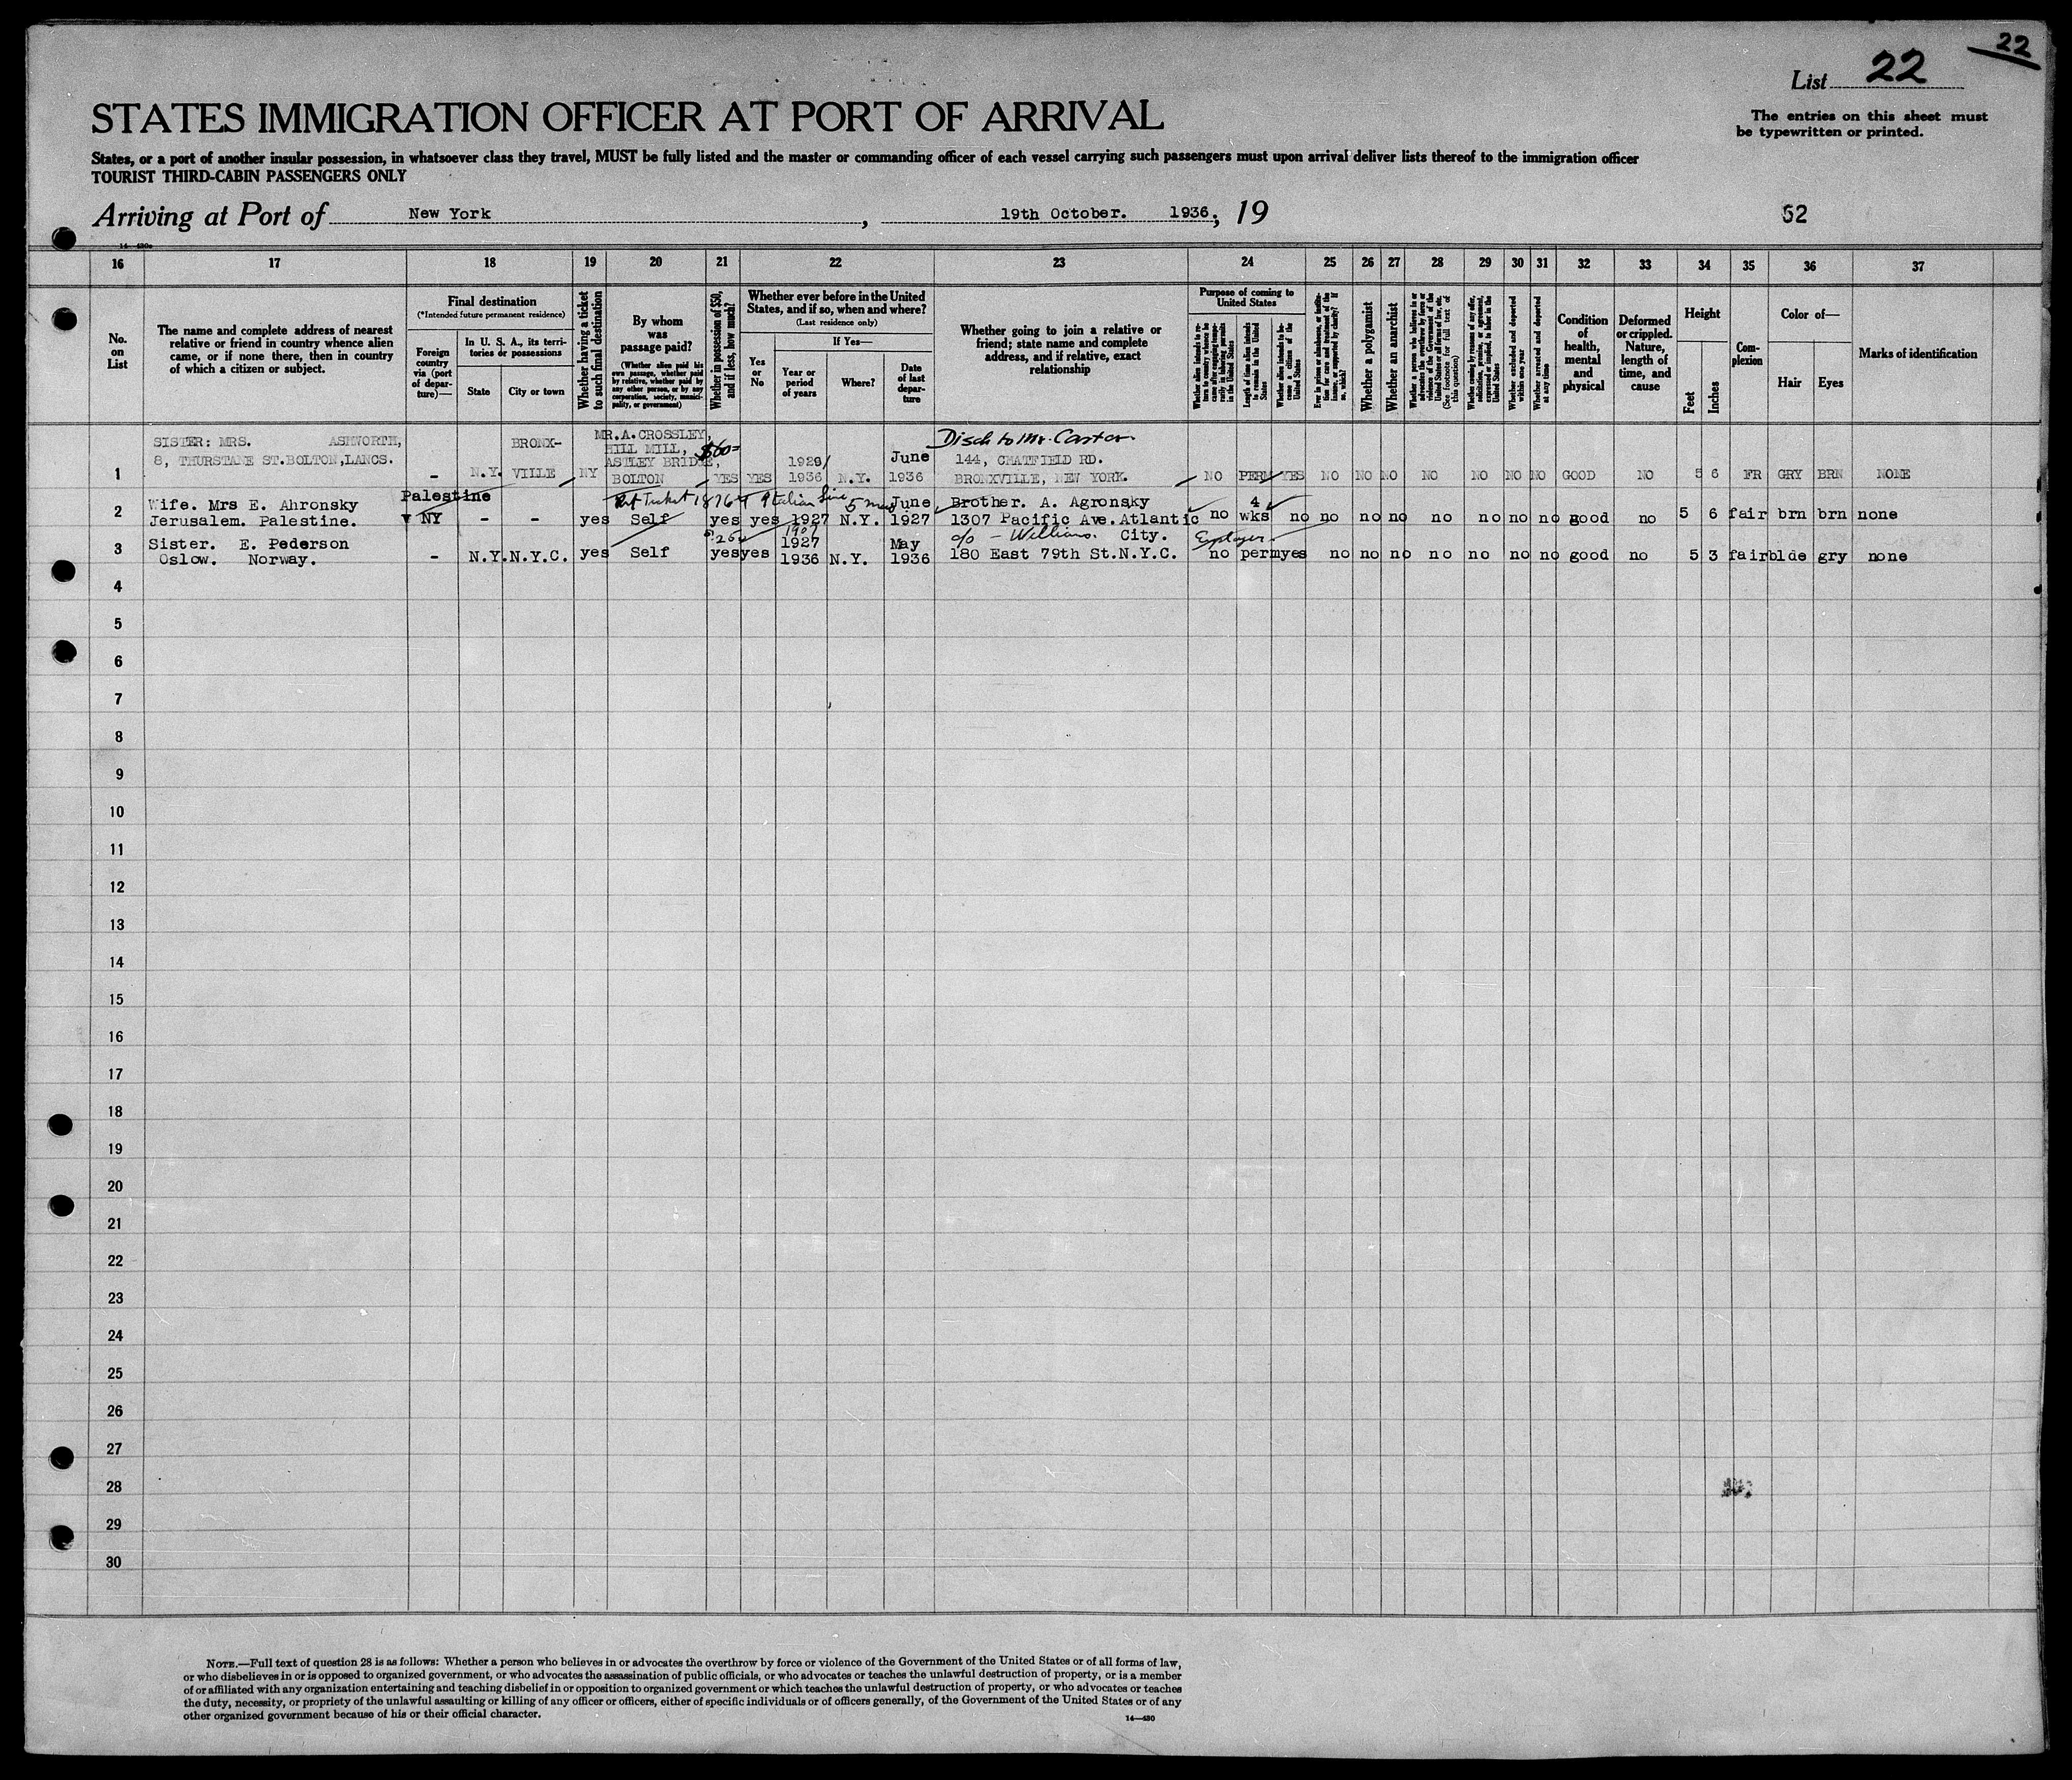 22
List 22
STATES IMMIGRATION OFFICER AT PORT OF ARRIVAL
The entries on this sheet must
be typewritten or printed.
States, or a port of another insular possession, in whatsoever class they travel, MUST be fully listed and the master or commanding officer of each vessel carrying such passengers must upon arrival deliver lists thereof to the immigration officer
TOURIST THIRD-CABIN PASSENGERS ONLY
Arriving at Port of New York, 19th October. 1936, 19
52
14—430a
16 17 18 19 20 21 22 23 24 25 26 27 28 29 30 31 32 33 34 35 36 37
No.
on
List
The name and complete address of nearest
relative or friend in country whence alien
came, or if none there, then in country
of which a citizen or subject.
Final destination
(*Intended future permanent residence)
Foreign
country
via (port
of depar-
ture)—
In U. S. A., its terri-
tories or possessions
State
City or town
Whether having a ticket
to such final destination
By whom
was
passage paid?
(Whether alien paid his
own passage, whether paid
by relative, whether paid by
any other person, or by any
corporation, society, munici-
pality, or government)
Whether in possession of $50,
and if less, how much?
Whether ever before in the United
States, and if so, when and where?
(Last residence only)
Yes
or
No
If Yes—
Year or
period
of years
Where?
Date
of last
depar-
ture
Whether going to join a relative or
friend; state name and complete
address, and if relative, exact
relationship
Purpose of coming to
United States
Length of time alien intends
to remain in the United
States
Whether alien intends to be-
come a citizen of the
United States
Whether a polygamist
Whether an anarchist
(See footnote for full text of
this question)
Whether excluded and deported
within one year
Whether arrested and deported
at any time
Condition
of
health,
mental
and
physical
Deformed
or crippled.
Nature,
length of
time, and
cause
Height
Feet
Inches
Com-
plexion
Color of—
Hair
Eyes
Marks of identification
1
SISTER: MRS. ASHWORTH,
8, THURSTANE ST.BOLTON,LANCS.
- N.Y. BRONX-
VILLE
NY
MR.A.CROSSLEY,
HILL MILL,
ASTLEY BRIDGE,
BOLTON
$60=
YES YES 1929/
1936 N.Y. June
1936
Disch to Mr. Carter
144, CHATFIELD RD.
BRONXVILLE, NEW YORK.
NO PERM YES NO NO NO NO NO NO NO GOOD NO 5 6 FR GRY BRN NONE
2
Wife. Mrs E. Ahronsky
Jerusalem. Palestine.
Palestine
NY - - yes
Ret Ticket Italian Line
Self yes yes 1927 N.Y. June
1927
Brother. A. Agronsky
1307 Pacific Ave.Atlantic
City.
no 4
wks no no no no no no no no good no 5 6 fair brn brn none
3
Sister. E. Pederson
Oslow. Norway.
- N.Y. N.Y.C. yes Self yes yes 1927
1936 N.Y. May
1936
c/o - Williams.
180 East 79th St.N.Y.C.
Employer
no perm yes no no no no no no no good no 5 3 fair blde gry none
4
5
6
7
8
9
10
11
12
13
14
15
16
17
18
19
20
21
22
23
24
25
26
27
28
29
30
NOTE.—Full text of question 28 is as follows: Whether a person who believes in or advocates the overthrow by force or violence of the Government of the United States or of all forms of law,
or who disbelieves in or is opposed to organized government, or who advocates the assassination of public officials, or who advocates or teaches the unlawful destruction of property, or is a member
of or affiliated with any organization entertaining and teaching disbelief in or opposition to organized government or which teaches the unlawful destruction of property, or who advocates or teaches
the duty, necessity, or propriety of the unlawful assaulting or killing of any officer or officers, either of specific individuals or of officers generally, of the Government of the United States or of any
other organized government because of his or their official character.
14—430